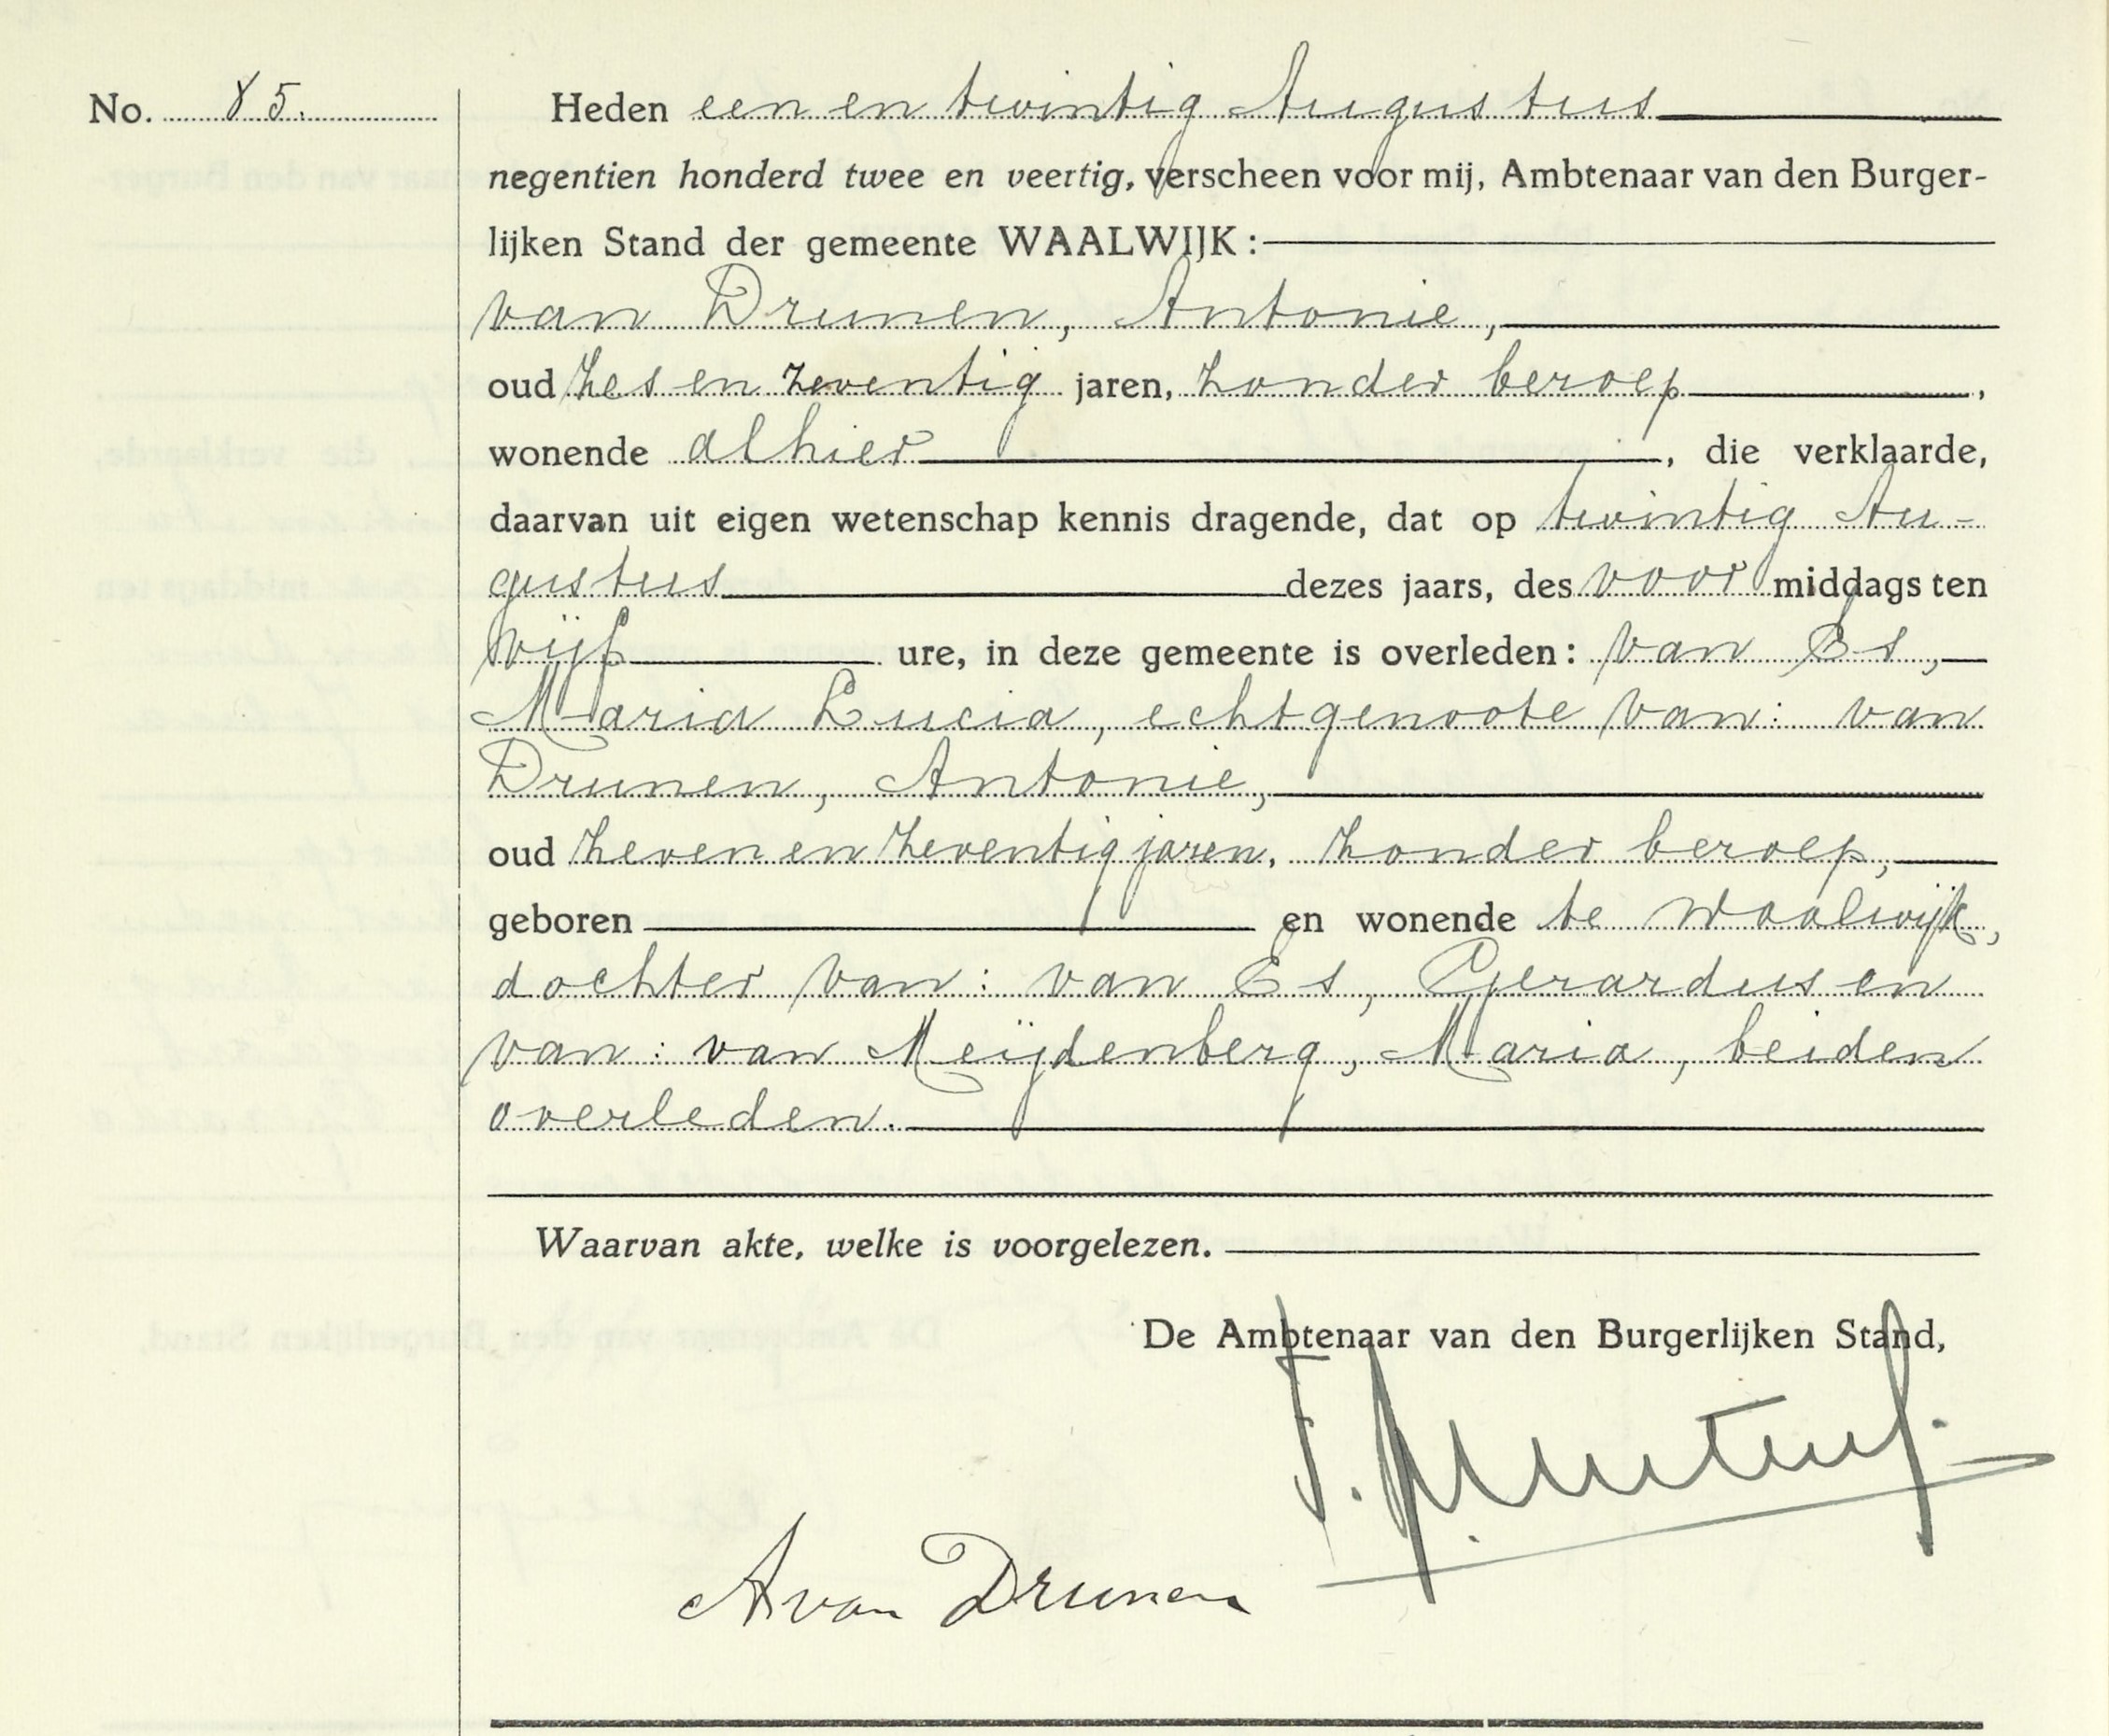 No. 85.
Heden een en twintig Augustus
negentien honderd twee en veertig, verscheen voor mij, Ambtenaar van den Burger-
lijken Stand der gemeente WAALWIJK:
van Drunen, Antonie,
oud zes en zeventig jaren, zonder beroep,
wonende alhier, die verklaarde,
daarvan uit eigen wetenschap kennis dragende, dat op twintig Au-
gustus dezes jaars, des voor middags ten
vijf ure, in deze gemeente is overleden: van Es,
Maria Lucia, echtgenoote van: van
Drunen, Antonie,
oud zeven en zeventig jaren, zonder beroep,
geboren en wonende te Waalwijk,
dochter van: van Es, Gerardus en
van: van Meijdenberg, Maria, beiden
overleden.
Waarvan akte, welke is voorgelezen.
De Ambtenaar van den Burgerlijken Stand,
A van Drunen